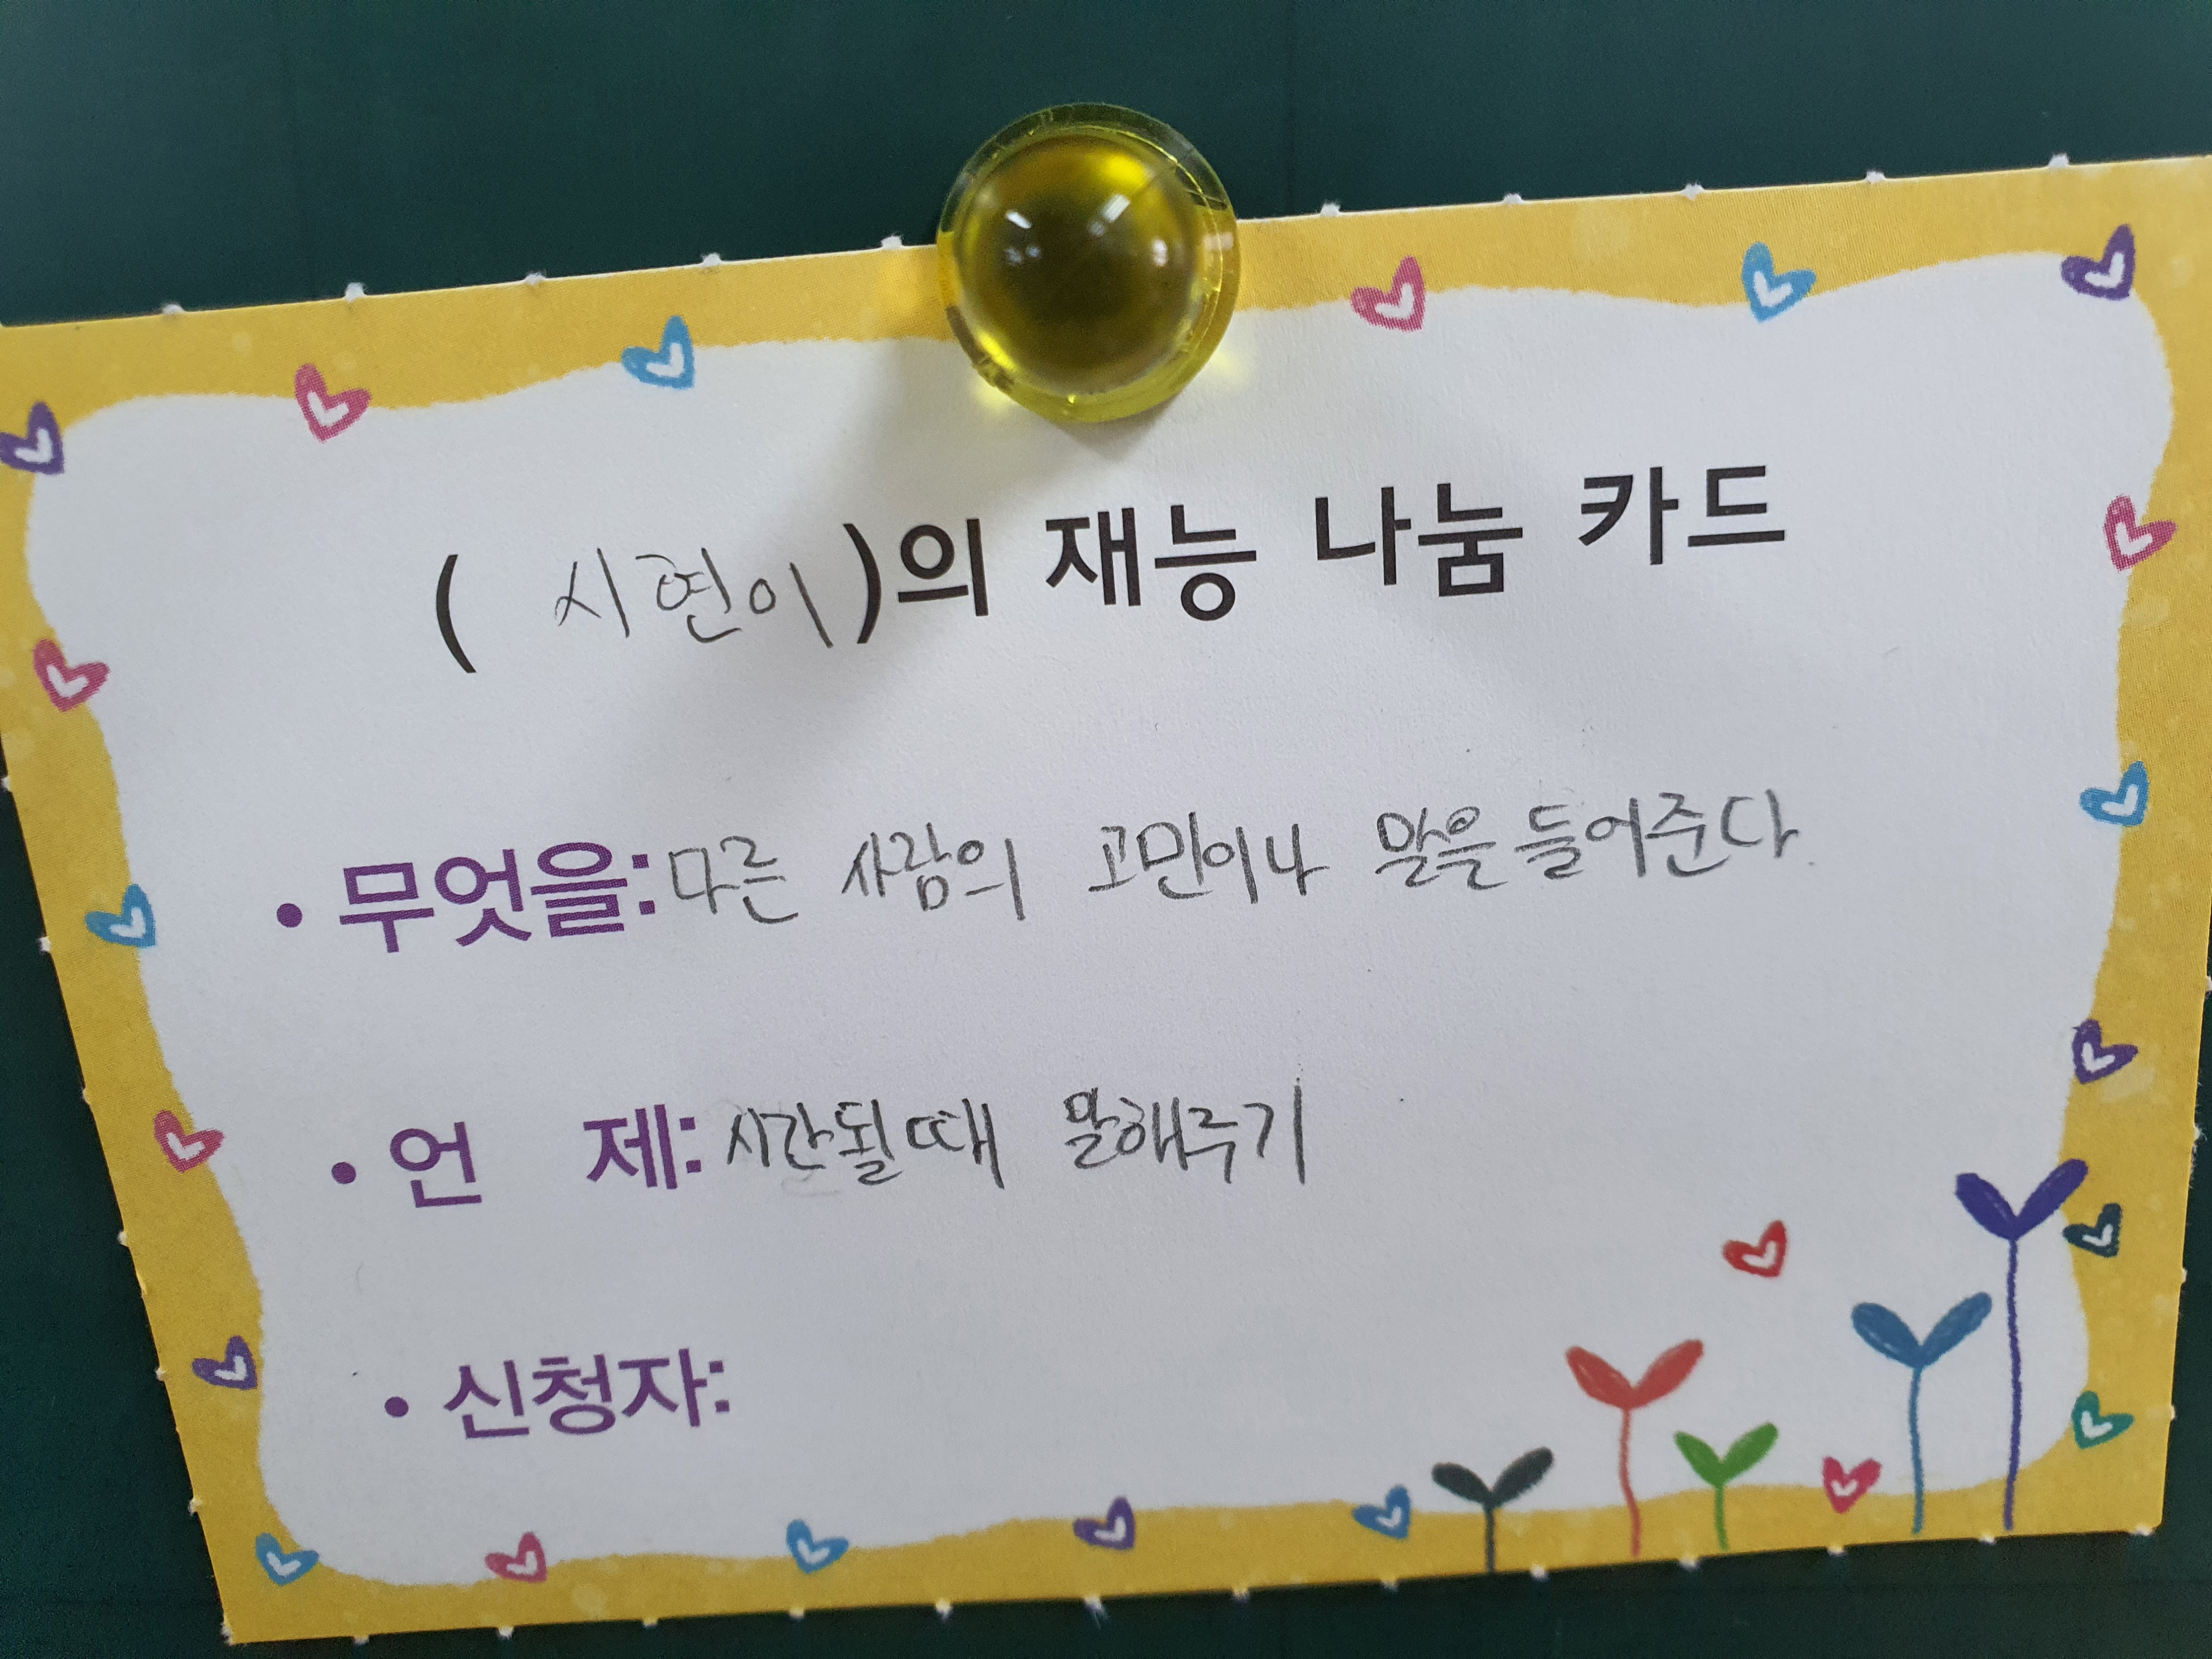 ( 시연이 )의 재능 나눔 카드
• 무엇을: 다른 사람의 고민이나 말을 들어준다.
• 언 제: 시간될때 말해주기
• 신청자: